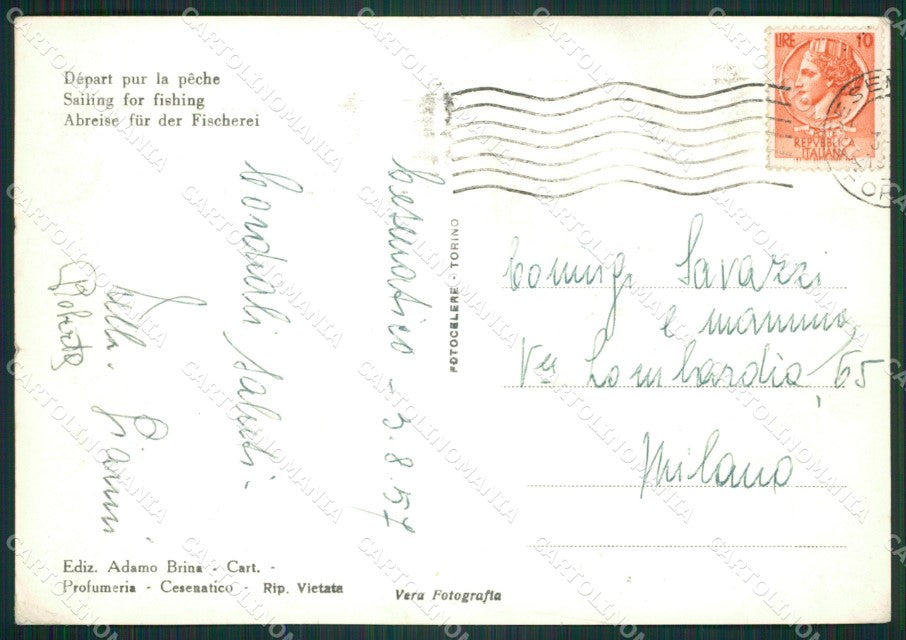 Départ pur la pêche
Sailing for fishing
Abreise für der Fischerei
Cesenatico - 3.8.57
Cordiali saluti -
Gianni
Roberto
Ediz. Adamo Brina - Cart. -
Profumeria - Cesenatico - Rip. Vietata
Vera Fotografia
FOTOCELERE - TORINO
LIRE 10
REPVBBLICA
ITALIANA
Savazzi
e mamma
Via Lombardia, 65
Milano
CARTOLINOMANIA